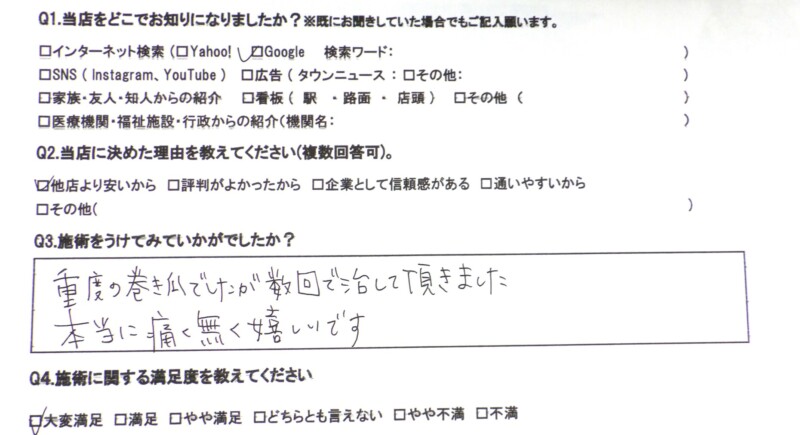 Q1.当店をどこでお知りになりましたか?※既にお聞きしていた場合でもご記入願います。
☐インターネット検索(☐Yahoo! ☑Google 検索ワード: )
☐SNS( Instagram、YouTube ) ☐広告( タウンニュース : ☐その他: )
☐家族・友人・知人からの紹介 ☐看板( 駅 ・路面 ・ 店頭 ) ☐その他 ( )
☐医療機関・福祉施設・行政からの紹介(機関名: )
Q2.当店に決めた理由を教えてください(複数回答可)。
☑他店より安いから ☐評判がよかったから ☐企業として信頼感がある ☐通いやすいから
☐その他( )
Q3.施術をうけてみていかがでしたか?
重度の巻き爪でしたが数回で治して頂きました
本当に痛く無く嬉しいです
Q4.施術に関する満足度を教えてください
☑大変満足 ☐満足 ☐やや満足 ☐どちらとも言えない ☐やや不満 ☐不満